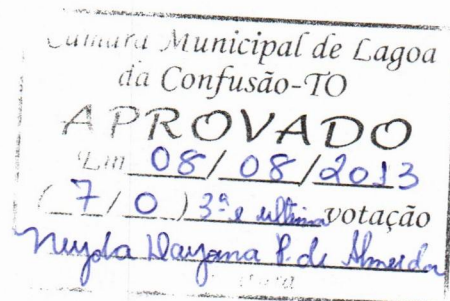 Câmara Municipal de Lagoa
da Confusão-TO
APROVADO
Em 08/08/2013
(7/0) 3ª e última votação
Neyda Dayana P. de Almeida